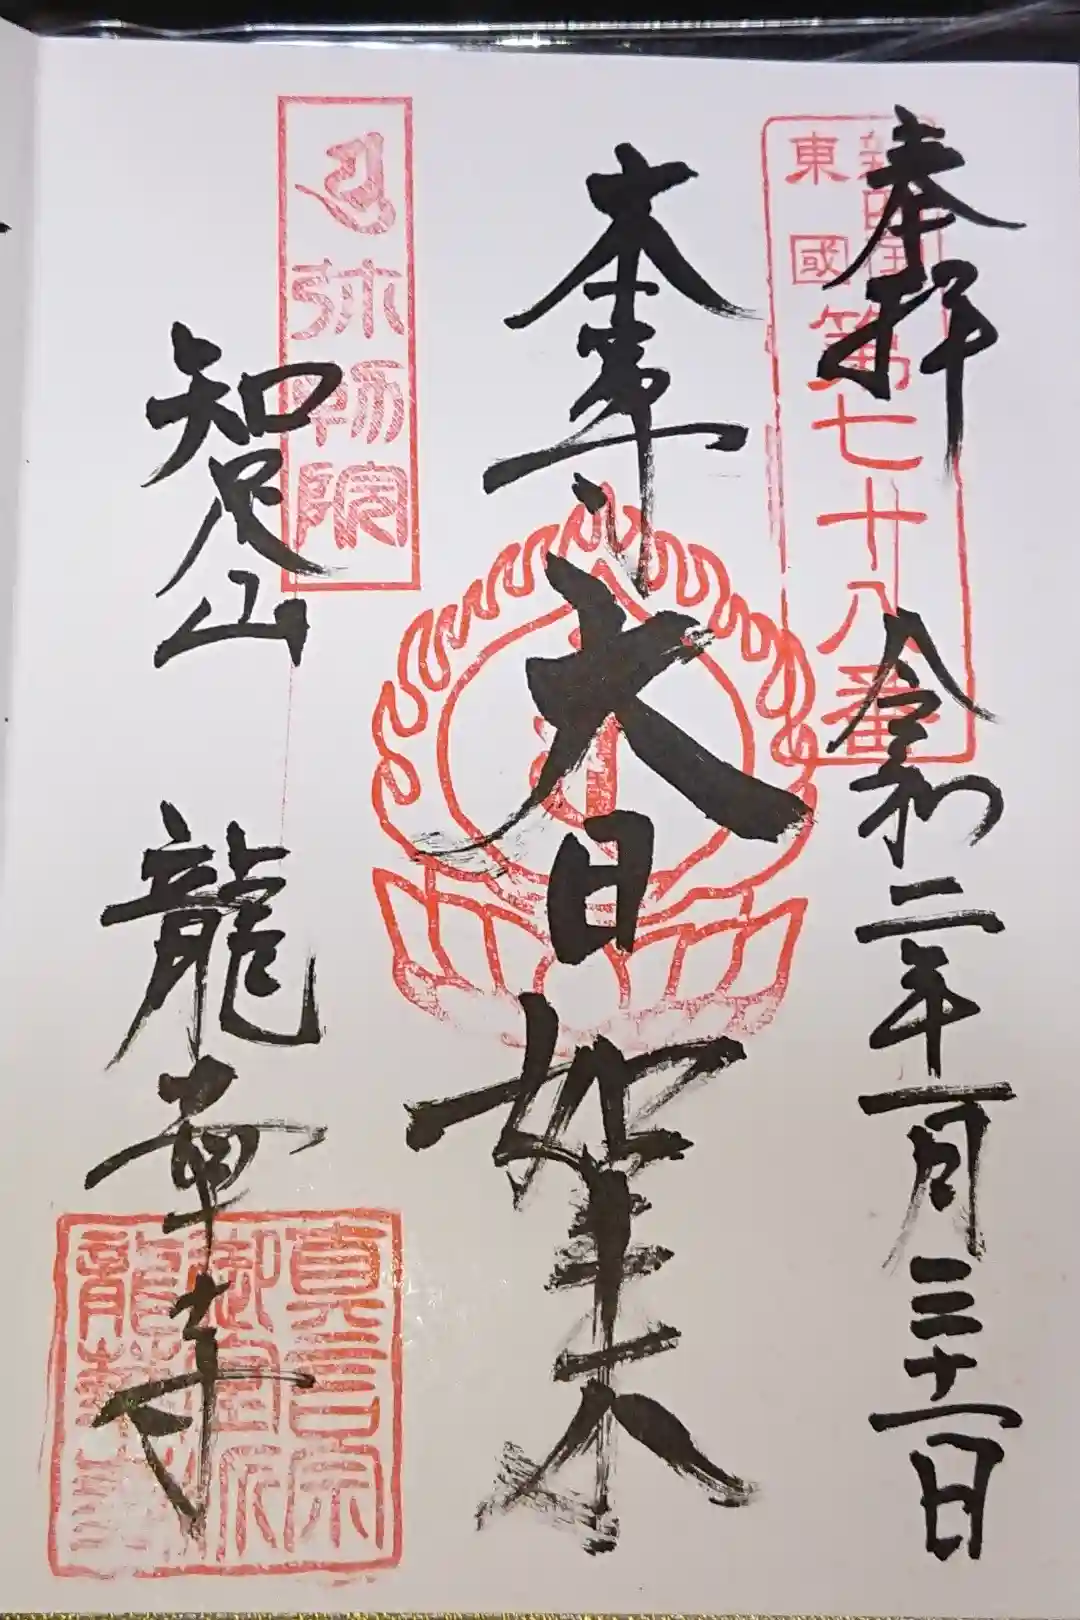 奉拝
令和二年一月三十一日
東國
第七十八番
本尊
大日如来
弥勒院
知足山
龍華寺
真言宗
御室派
龍華